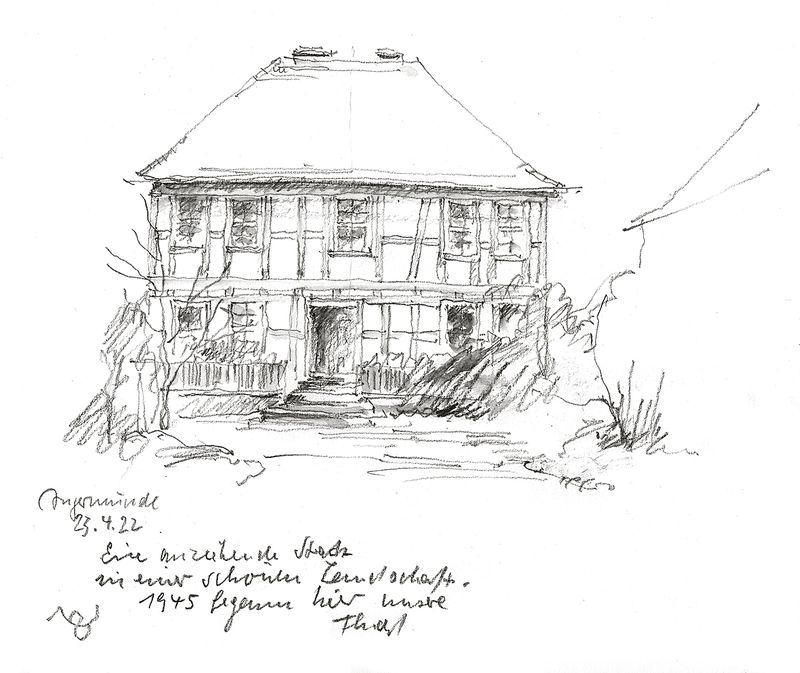 Angermünde
23.4.22
Eine anziehende Stadt
in einer schönen Landschaft.
1945 begann hier unsere
Flucht